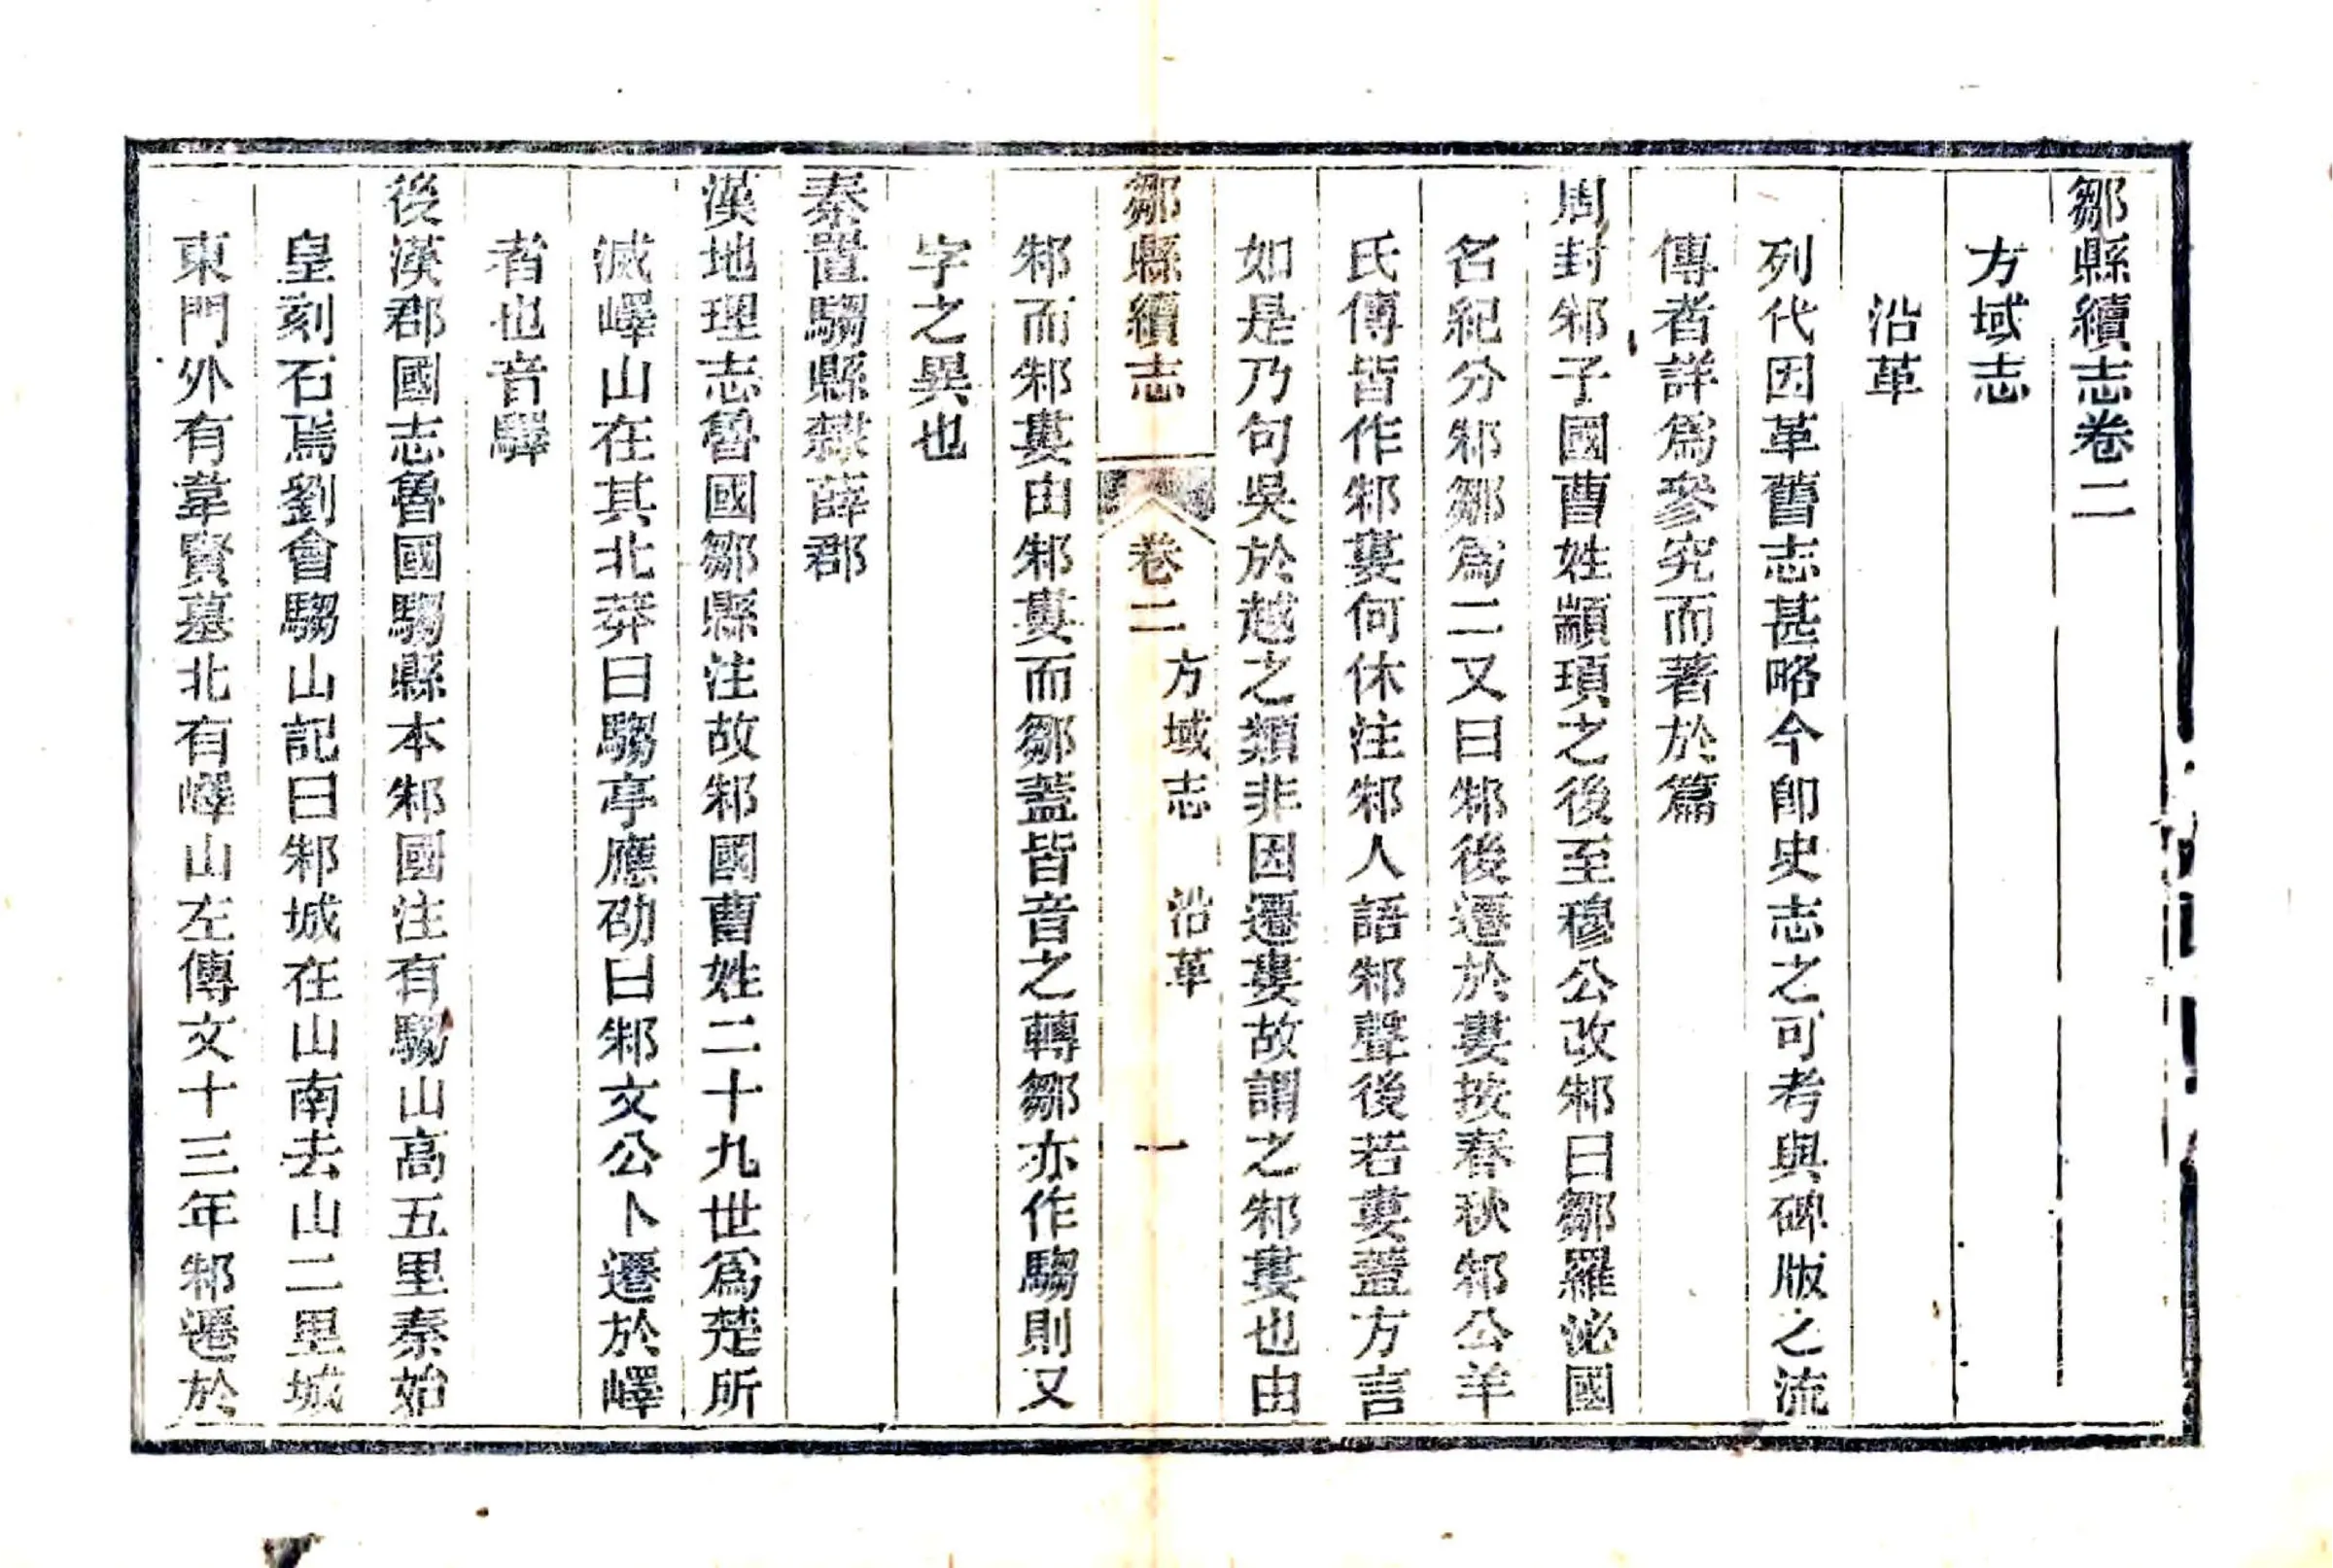 鄒縣續志卷二
方域志
沿革
列代因革舊志甚略今卽史志之可考與碑版之流
傳者詳爲參究而著於篇
周封邾子國曹姓顓頊之後至穆公改邾曰鄒羅泌國
名紀分邾鄒爲二又曰邾後遷於婁按春秋邾公羊
氏傳皆作邾婁何休注邾人語邾聲後若婁蓋方言
如是乃句吳於越之類非因遷婁故謂之邾婁也由
鄒縣續志 卷二 方域志 沿革 一
邾而邾婁由邾婁而鄒蓋皆音之轉鄒亦作騶則又
字之異也
秦置騶縣隸薛郡
漢地理志魯國鄒縣注故邾國曹姓二十九世爲楚所
滅嶧山在其北莽曰騶亭應劭曰邾文公卜遷於嶧
者也音驛
後漢郡國志魯國騶縣本邾國注有騶山高五里秦始
皇刻石焉劉會騶山記曰邾城在山南去山二里城
東門外有韋賢墓北有嶧山左傳文十三年邾遷於